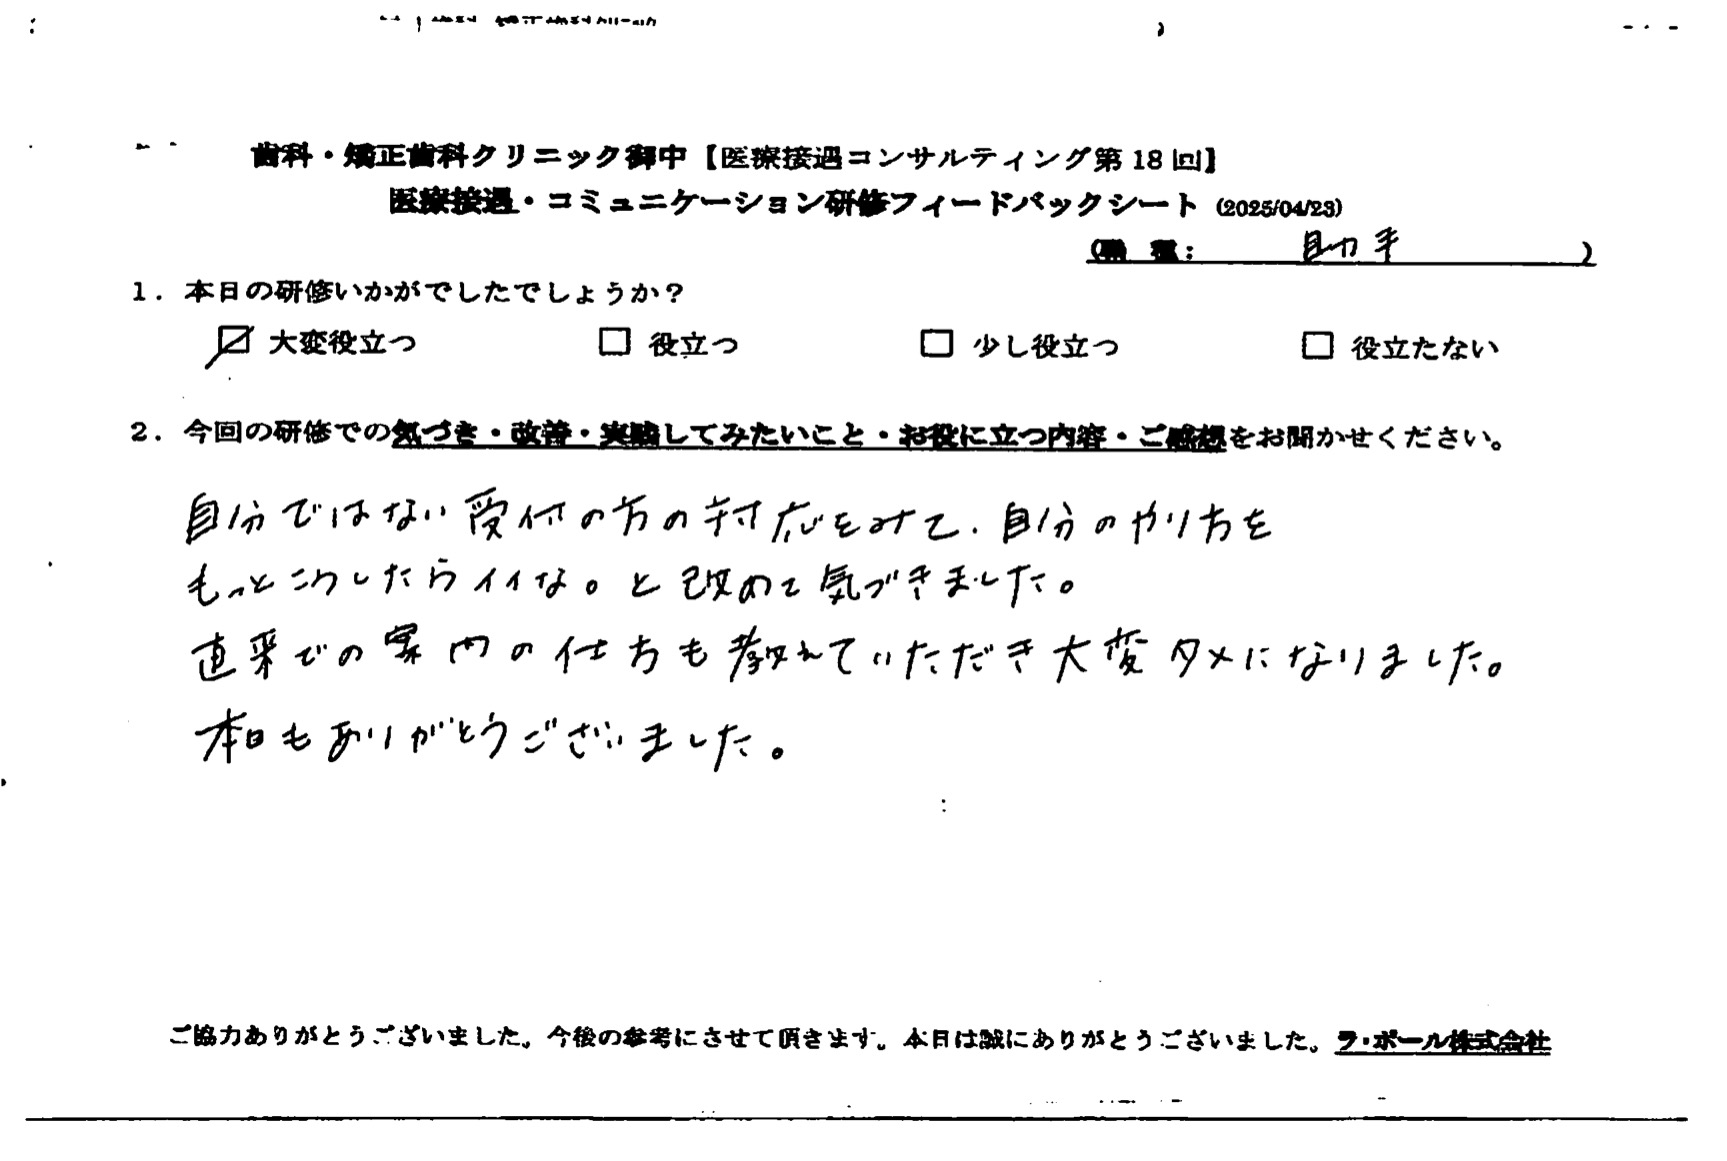 歯科・矯正歯科クリニック御中【医療接遇コンサルティング第18回】
医療接遇・コミュニケーション研修フィードバックシート (2025/04/23)
(職 種: 助手 )
1. 本日の研修いかがでしたでしょうか?
☑ 大変役立つ □ 役立つ □ 少し役立つ □ 役立たない
2. 今回の研修での気づき・改善・実践してみたいこと・お役に立つ内容・ご感想をお聞かせください。
自分ではない受付の方の対応をみて、自分のやり方を
もっとこうしたらイイな。と改めて気づきました。
直来での案内の仕方も教えていただき大変タメになりました。
本日もありがとうございました。
ご協力ありがとうございました。今後の参考にさせて頂きます。本日は誠にありがとうございました。ラ・ポール株式会社